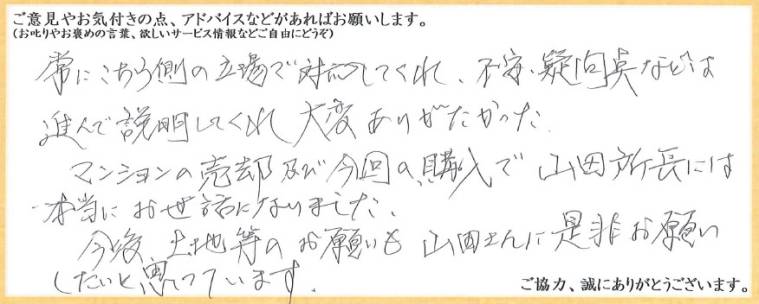 ご意見やお気付きの点、アドバイスなどがあればお願いします。
(お叱りやお褒めの言葉、欲しいサービス情報などご自由にどうぞ)
常にこちら側の立場で対応してくれ、不安、疑問点などは
進んで説明してくれ大変ありがたかった。
マンションの売却及び今回の購入で山田所長には
本当にお世話になりました。
今後、土地等のお願いも山田さんに是非お願い
したいと思っています。
ご協力、誠にありがとうございます。